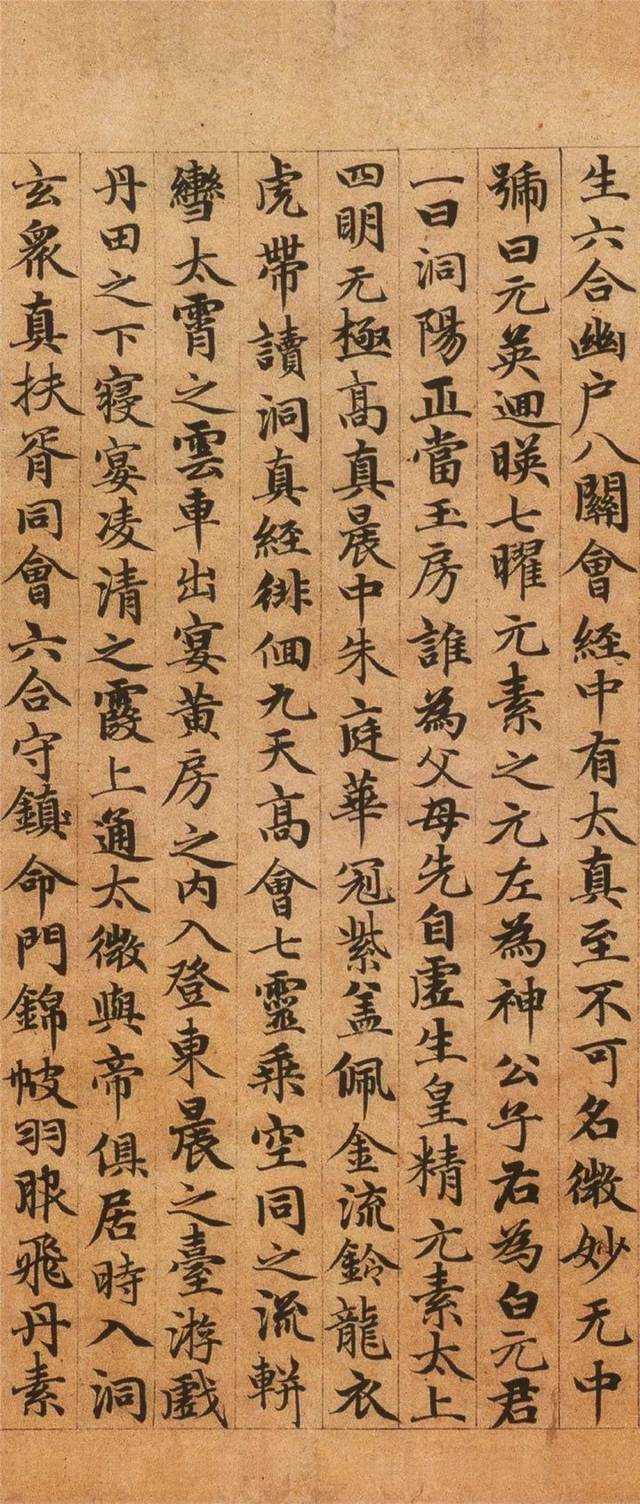 生六合幽户八關會経中有太真至不可名微妙无中
號曰元英迴暎七曜元素之元左為神公子右為白元君
一曰洞陽正當玉房誰為父母先自虛生皇精元素太上
四明元極高真晨中朱庭華冠紫盖佩金流鈴龍衣
虎帶讀洞真経徘佪九天高會七靈乗空同之流軿
轡太霄之雲車出宴黄房之内入登東晨之臺游戲
丹田之下寢宴凌清之霞上通太微與帝俱居時入洞
玄衆真扶胥同會六合守鎮命門錦帔羽服飛丹素